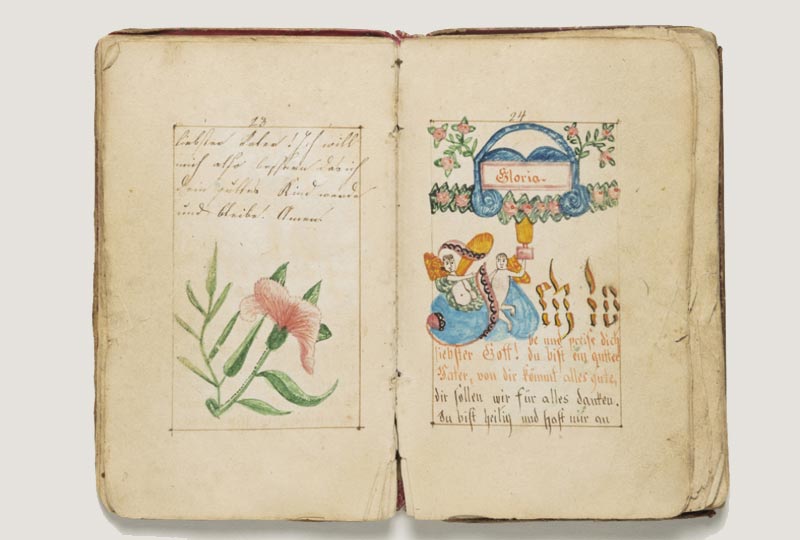 23
liebster Vater! Ich will
mich also bessern das ich
dein guttes Kind werde
und bleibe! Amen
24
Gloria.
be und preise dich
liebster Gott! du bist ein gutter
Vater, von dir kömmt alles gute,
dir sollen wir für alles danken.
du bist heilig und hast nur an